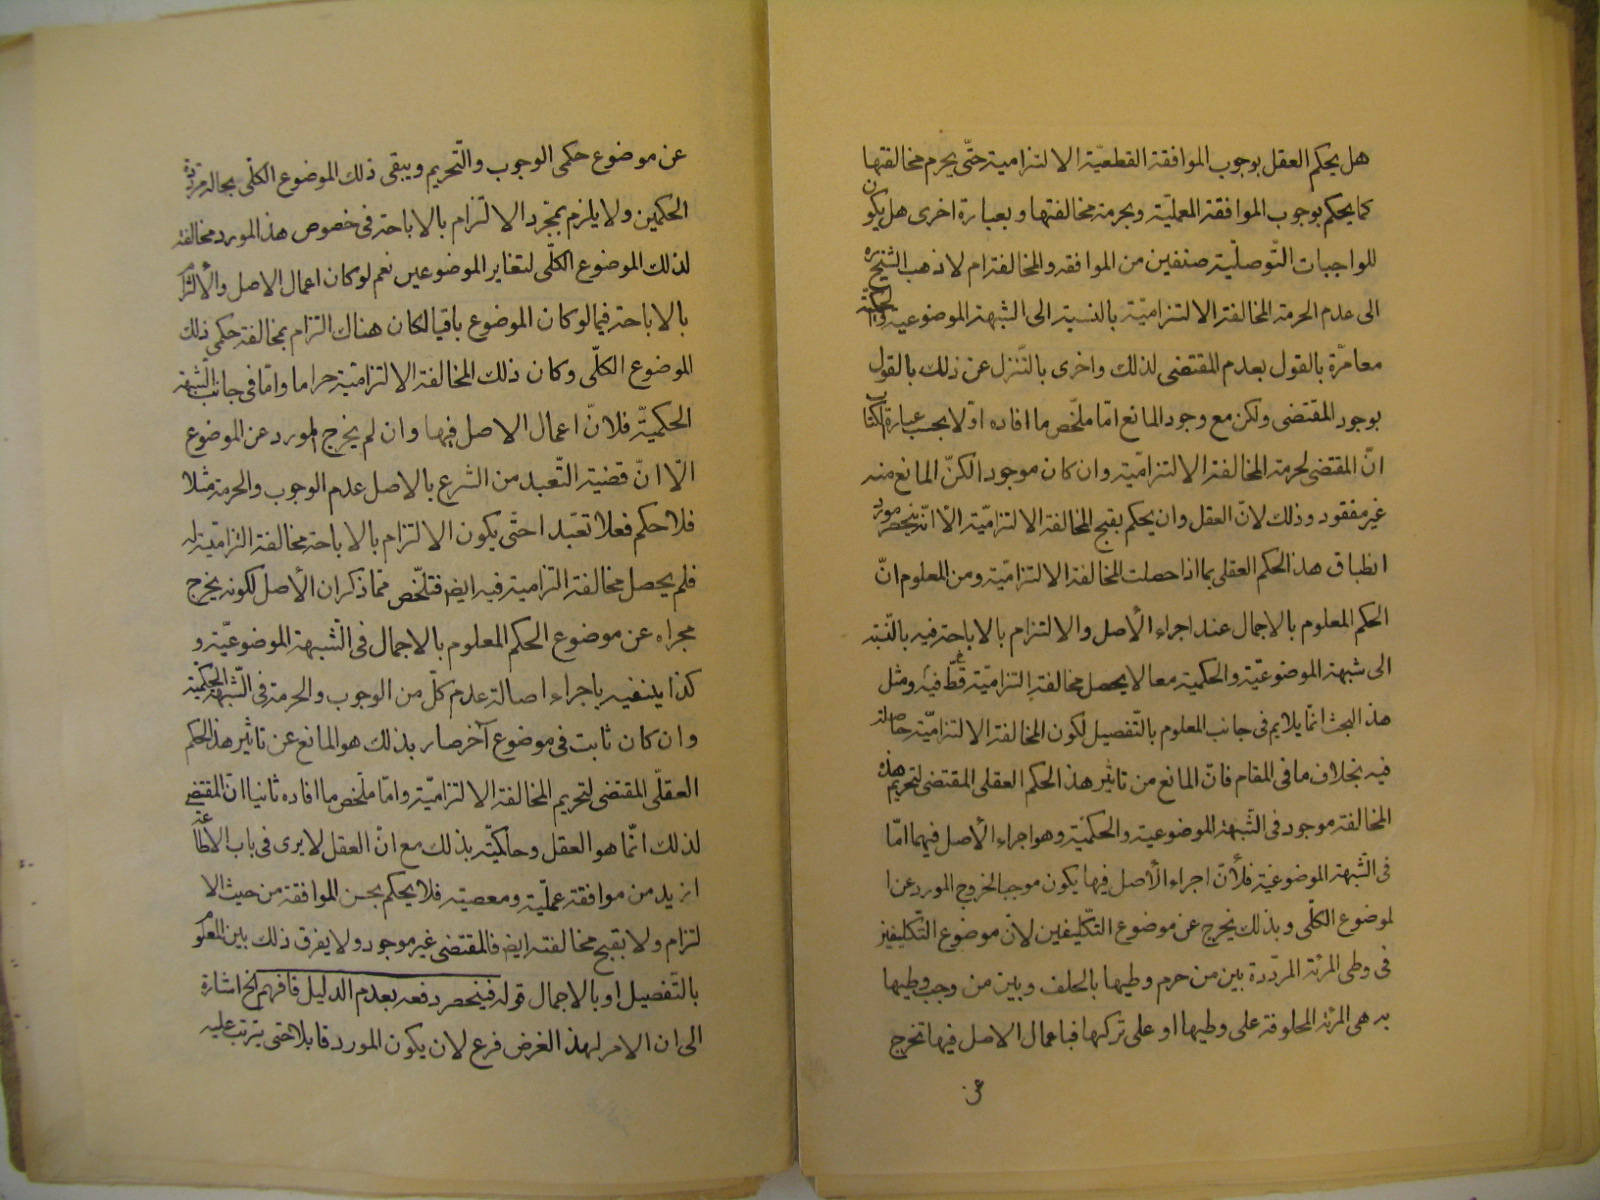 هل يحكم العقل بوجوب الموافقة القطعيّة الالتزامية حتّى يحرم مخالفتها
كما يحكم بوجوب الموافقة العمليّة وبحرمة مخالفتها وبعبارة اخرى هل يكون
للواجبات التّوصليّة صنفين من الموافقه والمخالفة ام لا ذهب الشيخ ره
الى عدم الحرمة المخالفة الالتزاميّة بالنسبة الى الشبهة الموضوعية والحكميّة
معا مرّة بالقول بعدم المقتضى لذلك واخرى بالتّنزل عن ذلك بالقول
بوجود المقتضى ولكن مع وجود المانع امّا ملخّص ما افاده اوّلا بحسب عبارة الكتاب
انّ المقتضى لحرمة المخالفة الالتزاميّة وان كان موجود الكنّ المانع منه
غير مفقود وذلك لانّ العقل وان يحكم بقبح المخالفة الالتزاميّة الّا انّه ينحصر مورد
انطباق هذ الحكم العقلى بما اذا حصلت المخالفة الالتزاميّة ومن المعلوم انّ
الحكم المعلوم بالاجمال عند اجراء الأصل والالتزام بالاباحة فيه بالنّسبة
الى شبهة الموضوعيّة والحكمية معا لا يحصل مخالفة إلتزاميّة قطّ فيه ومثل
هذ البحث انّما يلايم فى جانب المعلوم بالتّفصيل لكون المخالفة الالتزاميّة حاصلة
فيه بخلاف ما فى المقام فانّ المانع من تاثير هذ الحكم العقلى المقتضى لتحريم هذه
المخالفة موجود فى الشّبهة الموضوعية والحكميّة وهو اجراء الأصل فيهما امّا
فى الشّبهة الموضوعيّة فلأنّ اجراء الأصل فيها يكون موجب الخروج المورد عن ا
لموضوع الكلّى وبذلك يخرج عن موضوع التّكليفين لانّ موضوع التّكليفين
فى وطى المرئة المردّدة بين من حرم وطيها بالحلف وبين من وجب وطيها
به هى المرئة المحلوفة على وطيها او على تركها فباعمال الاصل فيها تخرج
عن
عن موضوع حكمى الوجوب والتّحريم ويبقى ذلك الموضوع الكلّى بحاله
الحكمين ولا يلزم بمجرّد الالتزام بالاباحة فى خصوص هذ المورد مخالفة
لذلك الموضوع الكلّى لتغاير الموضوعين نعم لو كان اعمال الاصل والالتزام
بالاباحة فيما لو كان الموضوع باقيا لكان هناك التزام بمخالفة حكمى ذلك
الموضوع الكلّى وكان ذلك المخالفة الالتزاميّة حراما وامّا فى جانب الشّبهة
الحكميّة فلانّ اعمال الاصل فيها وان لم يخرج المورد عن الموضوع
الّا انّ قضية التّعبد من الشرع بالاصل عدم الوجوب والحرمة مثلا
فلا حكم فعلا تعبّدا حتّى يكون الالتزام بالاباحة مخالفة التزاميّة له
فلم يحصل مخالفة التزامية فيه ايض فتلخّص ممّا ذكر ان الأصل لكونه يخرج
مجراه عن موضوع الحكم المعلوم بالاجمال فى الشّبهة الموضوعيّة و
كذا ينفيه باجراء اصالة عدم كلّ من الوجوب والحرمة فى الشّبهة الحكميّة
وان كان ثابت فى موضوع آخر صار بذلك هو المانع عن تاثير هذ الحكم
العقلّى المقتضى لتحريم المخالفة الالتزاميّة وامّا ملخّص ما افاده ثانيا انّ المقتضى
لذلك انّما هو العقل وحاكيّه بذلك مع انّ العقل لا يرى فى باب الاطاعة
ازيد من موافقة عمليّة ومعصية فلا يحكم بحسن الموافقة من حيث الا
لتزام ولا بقبح مخالفته ايض فالمقتضى غير موجود ولا يفرق ذلك بين المعلوم
بالتّفصيل او بالاجمال قوله فينحصر دفعه بعدم الدليل فافهم الخ اشارة
الى ان الامر لهذ الغرض فرع لان يكون المورد قابلا حتى يترتب عليه